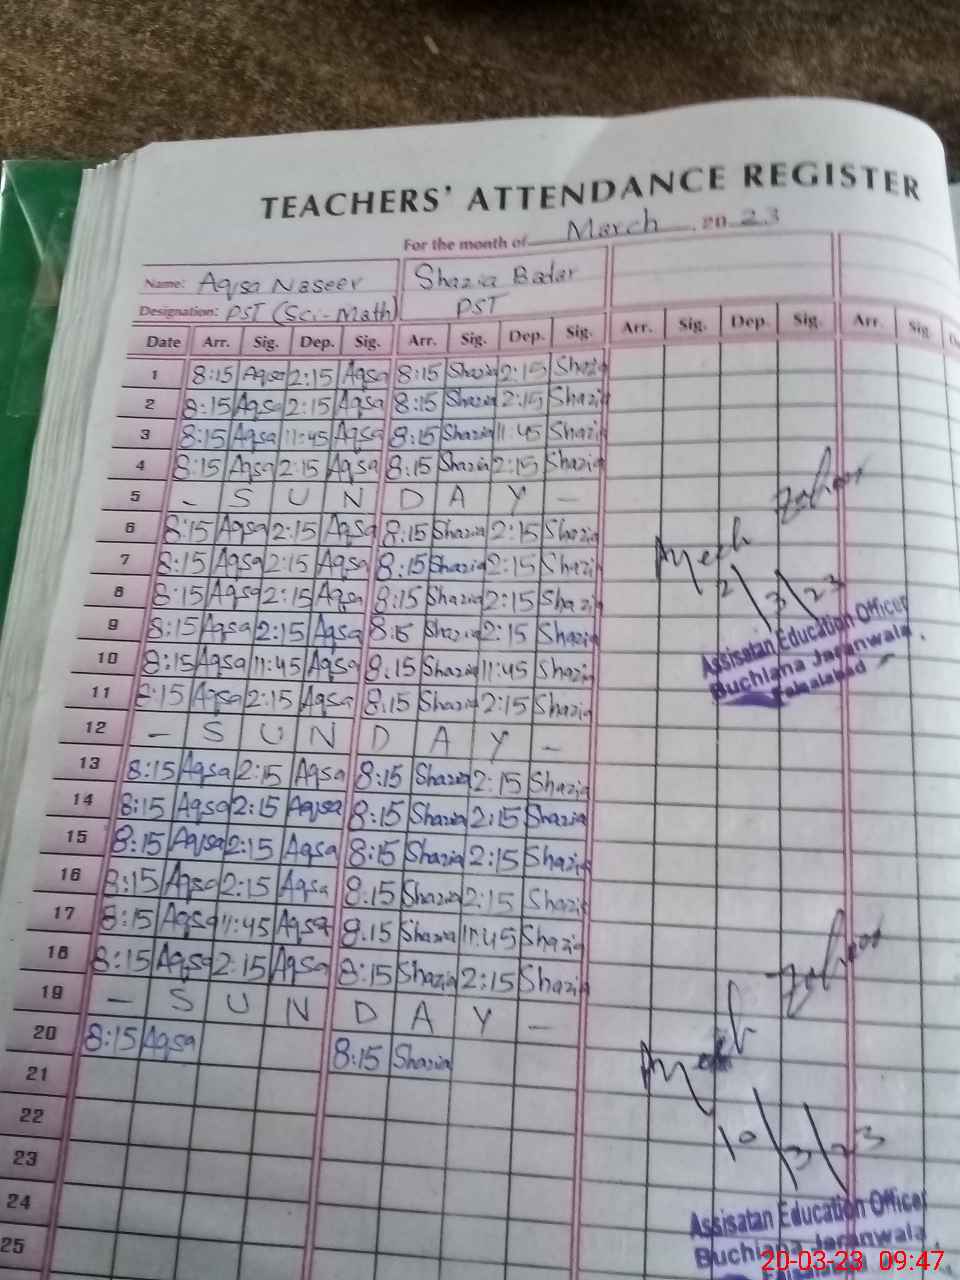 TEACHERS' ATTENDANCE REGISTER
For the month of March 2023
Name: Aqsa Naseer Shazia Badar
Designation: PST (Sci-Math) PST
Date Arr. Sig. Dep. Sig. Arr. Sig. Dep. Sig. Arr. Sig. Dep. Sig. Arr. Sig.
1 8:15 Aqsa 2:15 Aqsa 8:15 Shazia 2:15 Shazia
2 8:15 Aqsa 2:15 Aqsa 8:15 Shazia 2:15 Shazia
3 8:15 Aqsa 11:45 Aqsa 8:15 Shazia 11:45 Shazia
4 8:15 Aqsa 2:15 Aqsa 8:15 Shazia 2:15 Shazia
5 - S U N D A Y -
6 8:15 Aqsa 2:15 Aqsa 8:15 Shazia 2:15 Shazia
7 8:15 Aqsa 2:15 Aqsa 8:15 Shazia 2:15 Shazia
8 8:15 Aqsa 2:15 Aqsa 8:15 Shazia 2:15 Shazia
9 8:15 Aqsa 2:15 Aqsa 8:15 Shazia 2:15 Shazia
10 8:15 Aqsa 11:45 Aqsa 8:15 Shazia 11:45 Shazia
11 8:15 Aqsa 2:15 Aqsa 8:15 Shazia 2:15 Shazia
12 - S U N D A Y -
13 8:15 Aqsa 2:15 Aqsa 8:15 Shazia 2:15 Shazia
14 8:15 Aqsa 2:15 Aqsa 8:15 Shazia 2:15 Shazia
15 8:15 Aqsa 2:15 Aqsa 8:15 Shazia 2:15 Shazia
16 8:15 Aqsa 2:15 Aqsa 8:15 Shazia 2:15 Shazia
17 8:15 Aqsa 11:45 Aqsa 8:15 Shazia 11:45 Shazia
18 8:15 Aqsa 2:15 Aqsa 8:15 Shazia 2:15 Shazia
19 - S U N D A Y -
20 8:15 Aqsa 8:15 Shazia
21
22
23
24
25
2/3/23
Assisatan Education Officer
Buchiana Jaranwala.
Faisalabad
10/3/23
Assisatan Education Officer
Buchiana Jaranwala.
Faisalabad
20-03-23 09:47